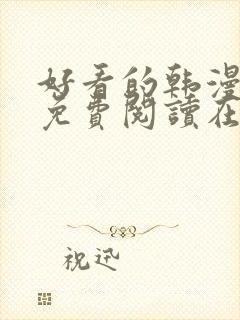 好看的韩漫
免費閱讀在
祝迅